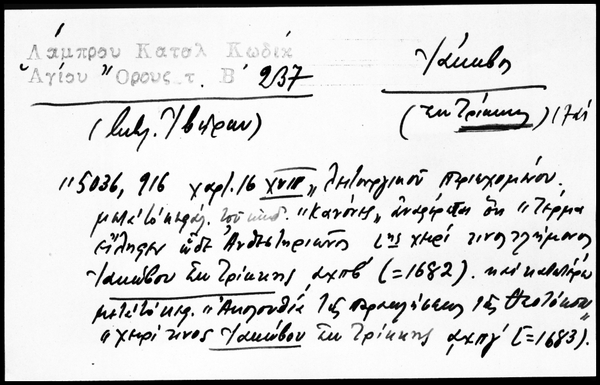 Λάμπρου Καταλ Κωδικ
Ἁγίου Ὄρους τ. Β΄ 237
Ἰάκωβος
(Βιβλ. Ἰβήρων)
(ἐκ Τρίκκης) 17 αἰ
"5036, 916 χαρτ. 16 XVII" Λειτουργικοῦ περιεχομένου.
μετὰ τὸ κεφάλ. τοῦ κώδ. "Κανόνες" ἀναφέρεται ὅτι "Τέρμα
εἴληφεν ὧδε Ἀνθεστηριῶνος τῆς χειρὶ τινος τλήμονος
Ἰακώβου ἐκ Τρίκκης αχπβ΄ (=1682). καὶ κατωτέρω
μετὰ τὸ κεφ. "Ἀκολουθία τῆς παρακλήσεως τῆς Θεοτόκου"
"χειρὶ τίνος Ἰακώβου ἐκ Τρίκκης αχπγ΄ (=1683).